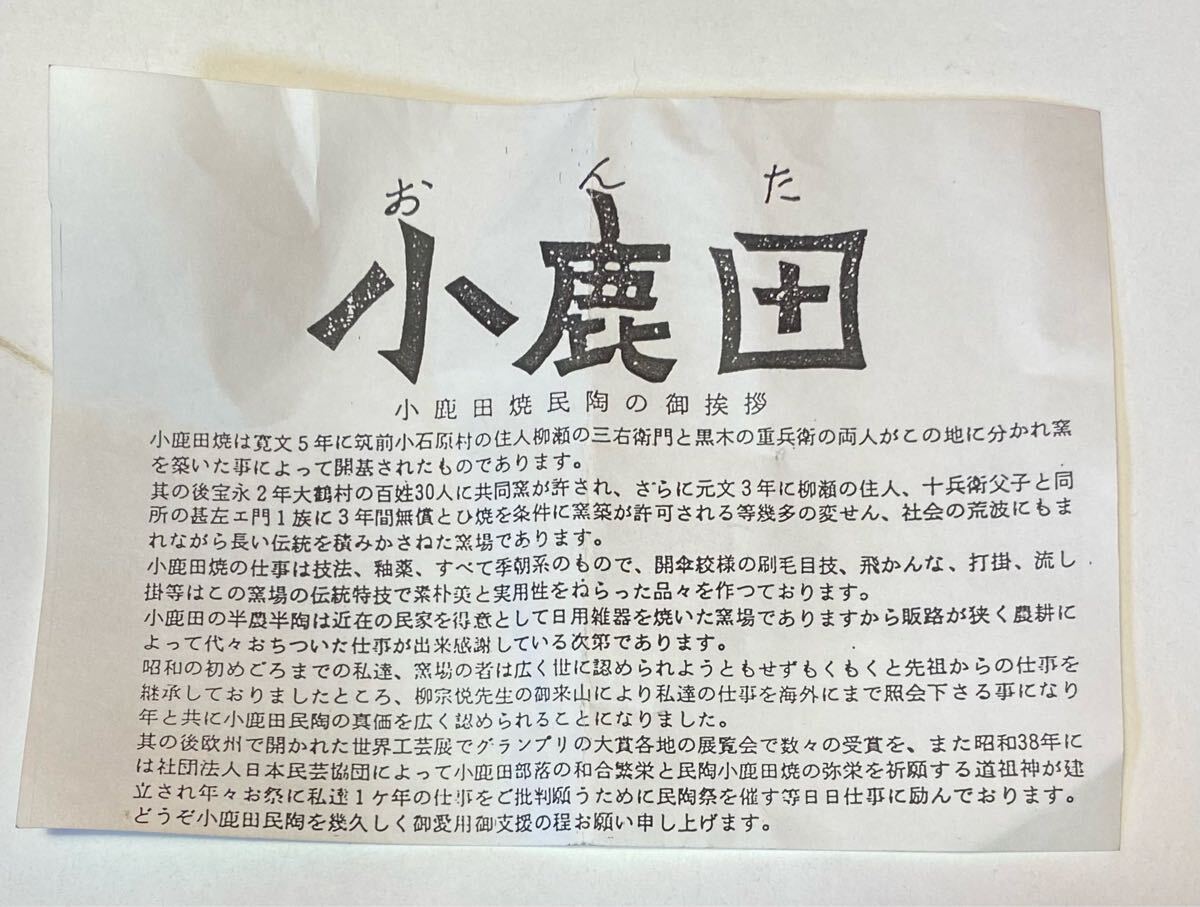 おんた
小鹿田
小鹿田焼民陶の御挨拶
小鹿田焼は寛文5年に筑前小石原村の住人柳瀬の三右衛門と黒木の重兵衛の両人がこの地に分かれ窯
を築いた事によって開基されたものであります。
其の後宝永2年大鶴村の百姓30人に共同窯が許され、さらに元文3年に柳瀬の住人、十兵衛父子と同
所の甚左ェ門1族に3年間無償とひ焼を条件に窯築が許可される等幾多の変せん、社会の荒波にもま
れながら長い伝統を積みかさねた窯場であります。
小鹿田焼の仕事は技法、釉薬、すべて季朝系のもので、開傘紋様の刷毛目技、飛かんな、打掛、流し
掛等はこの窯場の伝統特技で素朴美と実用性をねらった品々を作つております。
小鹿田の半農半陶は近在の民家を得意として日用雑器を焼いた窯場でありますから販路が狭く農耕に
よって代々おちついた仕事が出来感謝している次第であります。
昭和の初めごろまでの私達、窯場の者は広く世に認められようともせずもくもくと先祖からの仕事を
継承しておりましたところ、柳宗悦先生の御来山により私達の仕事を海外にまで照会下さる事になり
年と共に小鹿田民陶の真価を広く認められることになりました。
其の後欧州で開かれた世界工芸展でグランプリの大賞各地の展覧会で数々の受賞を、また昭和38年に
は社団法人日本民芸協団によって小鹿田部落の和合繁栄と民陶小鹿田焼の弥栄を祈願する道祖神が建
立され年々お祭に私達1ケ年の仕事をご批判願うために民陶祭を催す等日日仕事に励んでおります。
どうぞ小鹿田民陶を幾久しく御愛用御支援の程お願い申し上げます。